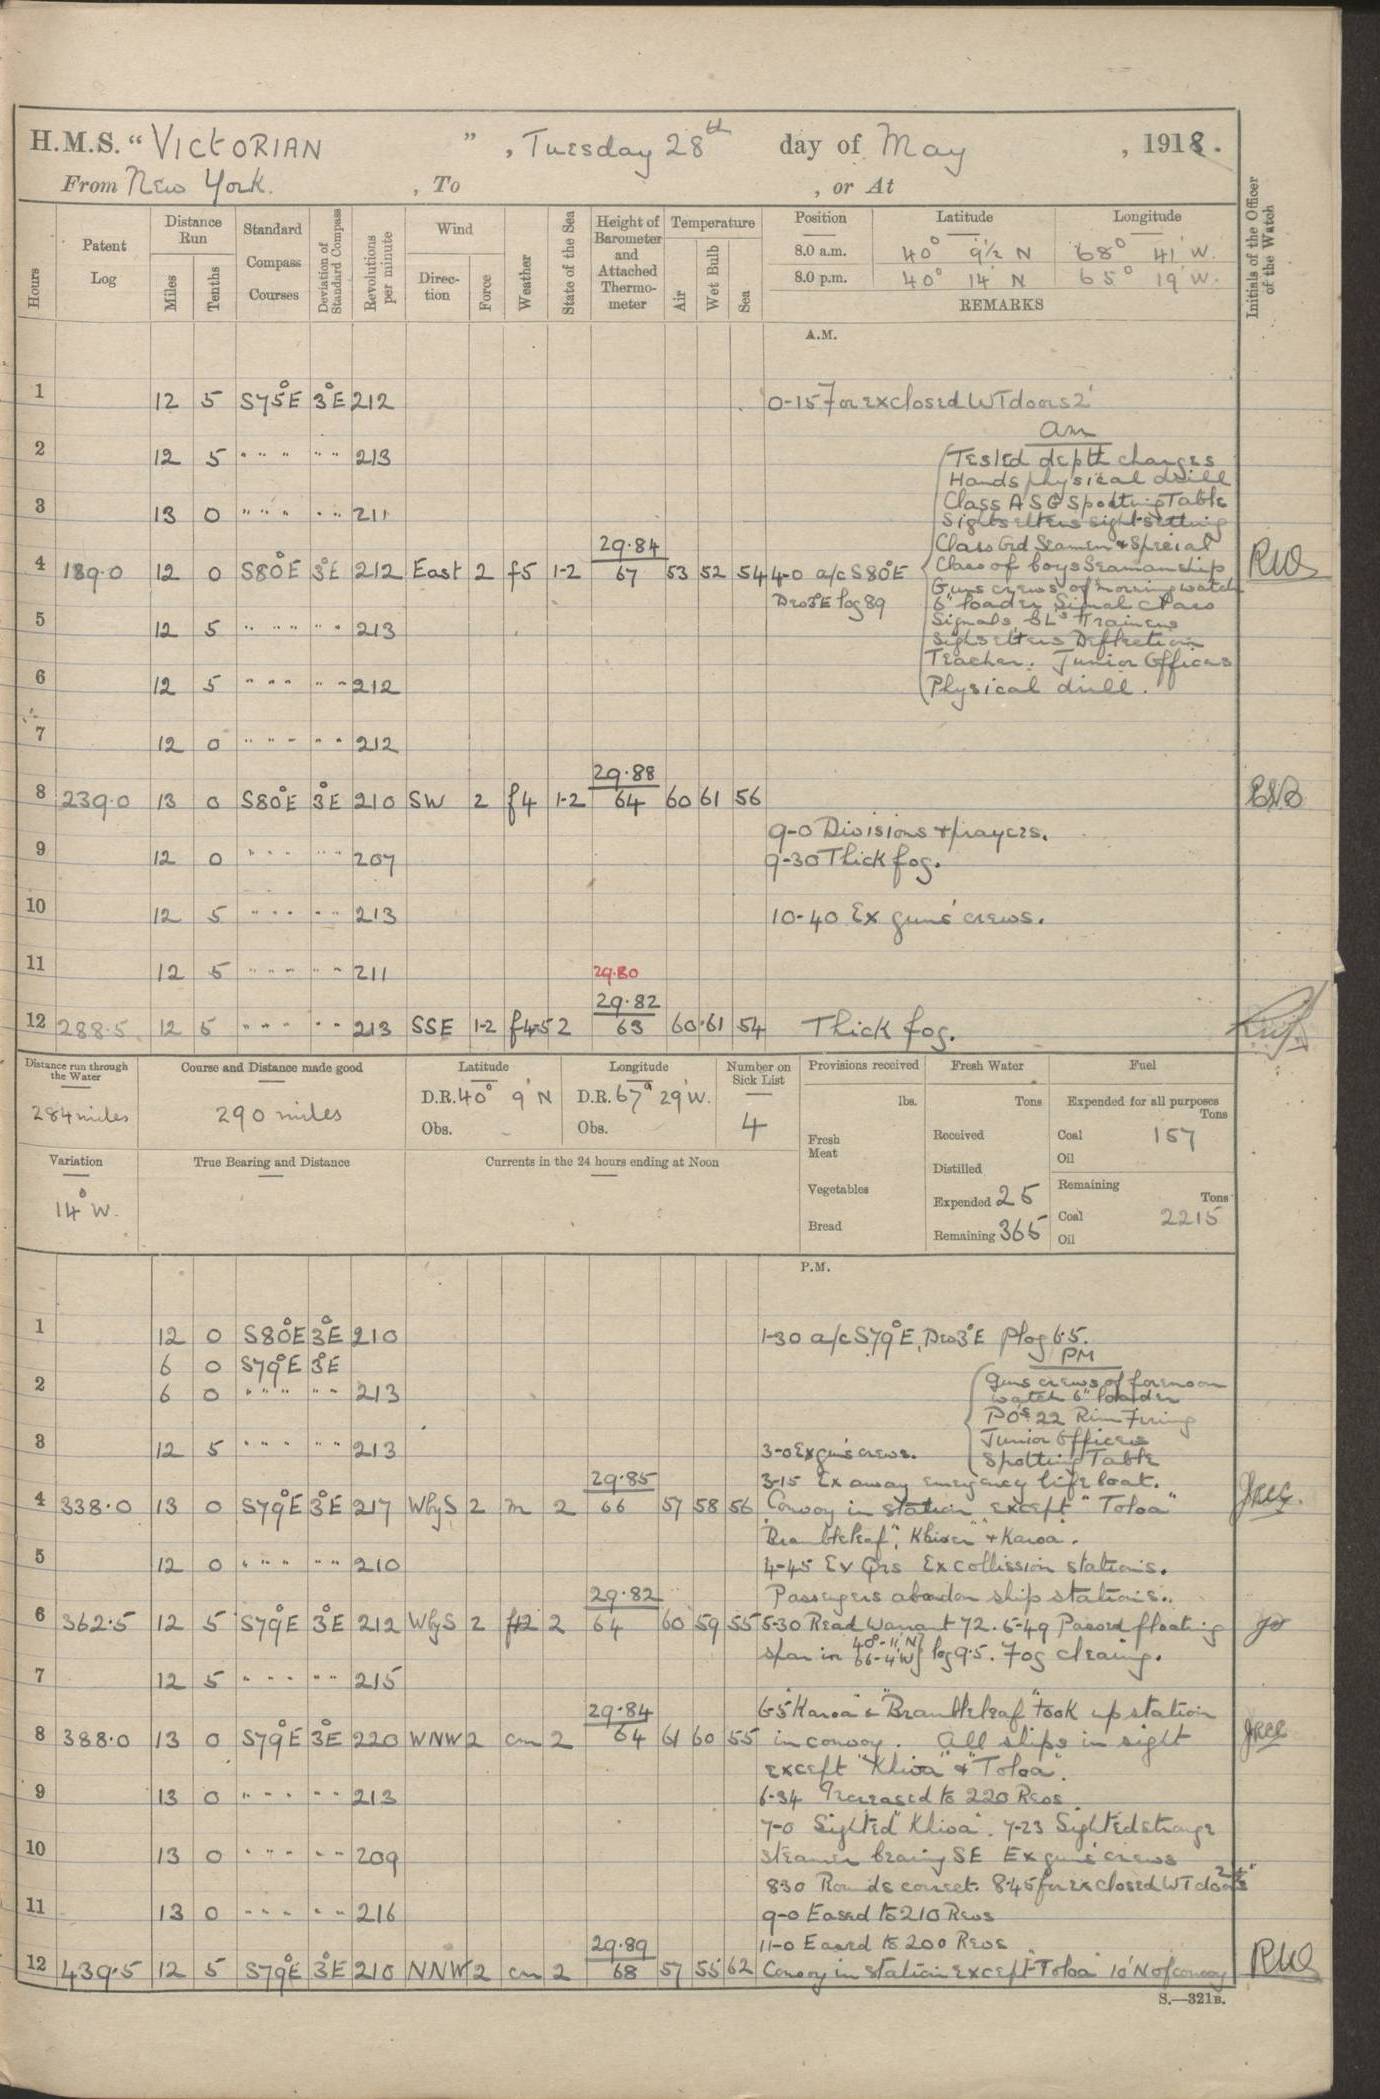 H.M.S. “ VICTORIAN ” , Tuesday 28th day of May , 1918.
From New York. , To , or At
Hours
Patent Log
Distance Run
Miles
Tenths
Standard Compass Courses
Deviation of Standard Compass
Revolutions per minute
Wind
Direction
Force
Weather
State of the Sea
Height of Barometer and Attached Thermometer
Temperature
Air
Wet Bulb
Sea
Position Latitude Longitude
8.0 a.m. 40° 9½ N 68° 41' W.
8.0 p.m. 40° 14' N 65° 19' W.
REMARKS
Initials of the Officer of the Watch
A.M.
1 12 5 S75°E 3°E 212 0-15 For ex closed WT doors 2'
am
2 12 5 " " " " " 213 Tested depth charges
Hands physical drill
3 13 0 " " " " " 211 Class A SG Spotting Table
Sightsetters sight setting
29.84 Class Grd Seamen & Special
4 189.0 12 0 S80°E 3°E 212 East 2 f5 1-2 67 53 52 54 4-0 a/c S80°E Class of boys Seamanship RWO
Guns crews of morning watch
Dev 3°E log 89 6" loader Signal class
5 12 5 " " " " " 213 Signals SLs Trainers
Sightsetters Deflection
Teacher. Junior Officers
6 12 5 " " " " " 212 Physical drill.
7 12 0 " " " " " 212
29.88
8 239.0 13 0 S80°E 3°E 210 SW 2 f4 1-2 64 60 61 56
9-0 Divisions & prayers.
9 12 0 " " " " " 207 9-30 Thick fog.
10 12 5 " " " " " 213 10-40 Ex guns' crews.
11 12 5 " " " " " 211 29.80
29.82
12 288.5 12 5 " " " " " 213 SSE 1-2 f4-5 2 63 60 61 54 Thick fog.
Distance run through the Water
284 miles
Course and Distance made good
290 miles
Latitude
D.R. 40° 9' N
Obs.
Longitude
D.R. 67° 29' W.
Obs.
Number on Sick List
4
Provisions received
lbs.
Fresh Meat
Vegetables
Bread
Fresh Water
Tons
Received
Distilled
Expended 25
Remaining 365
Fuel
Expended for all purposes
Tons
Coal 157
Oil
Remaining
Tons
Coal 2215
Oil
Variation
14° W.
True Bearing and Distance
Currents in the 24 hours ending at Noon
P.M.
1 12 0 S80°E 3°E 210 1-30 a/c S79°E, Dev 3°E Plog 6.5.
6 0 S79°E 3°E PM
2 6 0 " " " " " 213 Guns crews of forenoon
watch 6" loader
POs 22 Rim Firing
Junior Officers
3 12 5 " " " " " 213 3-0 Ex guns crews. Spotting Table
29.85 3-15 Ex away emergency life boat.
4 338.0 13 0 S79°E 3°E 217 WbyS 2 m 2 66 57 58 56 Convoy in station except "Toloa"
"Brambleleaf", Khiva & Karoa.
5 12 0 " " " " " 210 4-45 Ev Qrs Ex collission stations.
29.82 Passengers abandon ship stations.
6 362.5 12 5 S79°E 3°E 212 WbyS 2 f12 2 64 60 59 55 5-30 Read Warrant 72. 5-49 Passed floating
spar in 40°-11'N 66-4'W } log 9.5. Fog clearing.
7 12 5 " " " " " 215
29.84 6-5 "Karoa" & "Brambleleaf" took up station
8 388.0 13 0 S79°E 3°E 220 WNW 2 cm 2 64 61 60 55 in convoy. All ships in sight
except "Khiva" & "Toloa".
9 13 0 " " " " " 213 6-34 Increased to 220 Revs
7-0 Sighted "Khiva". 7-23 Sighted strange
10 13 0 " " " " " 209 steamer bearing SE Ex guns' crews
8.30 Rounds correct. 8.45 for ex closed WT doors
11 13 0 " " " " " 216 9-0 Eased to 210 Revs
29.89 11-0 Eased to 200 Revs
12 439.5 12 5 S79°E 3°E 210 NNW 2 cm 2 68 57 55 62 Convoy in station except "Toloa" 10' N of convoy RWO
S.—321B.